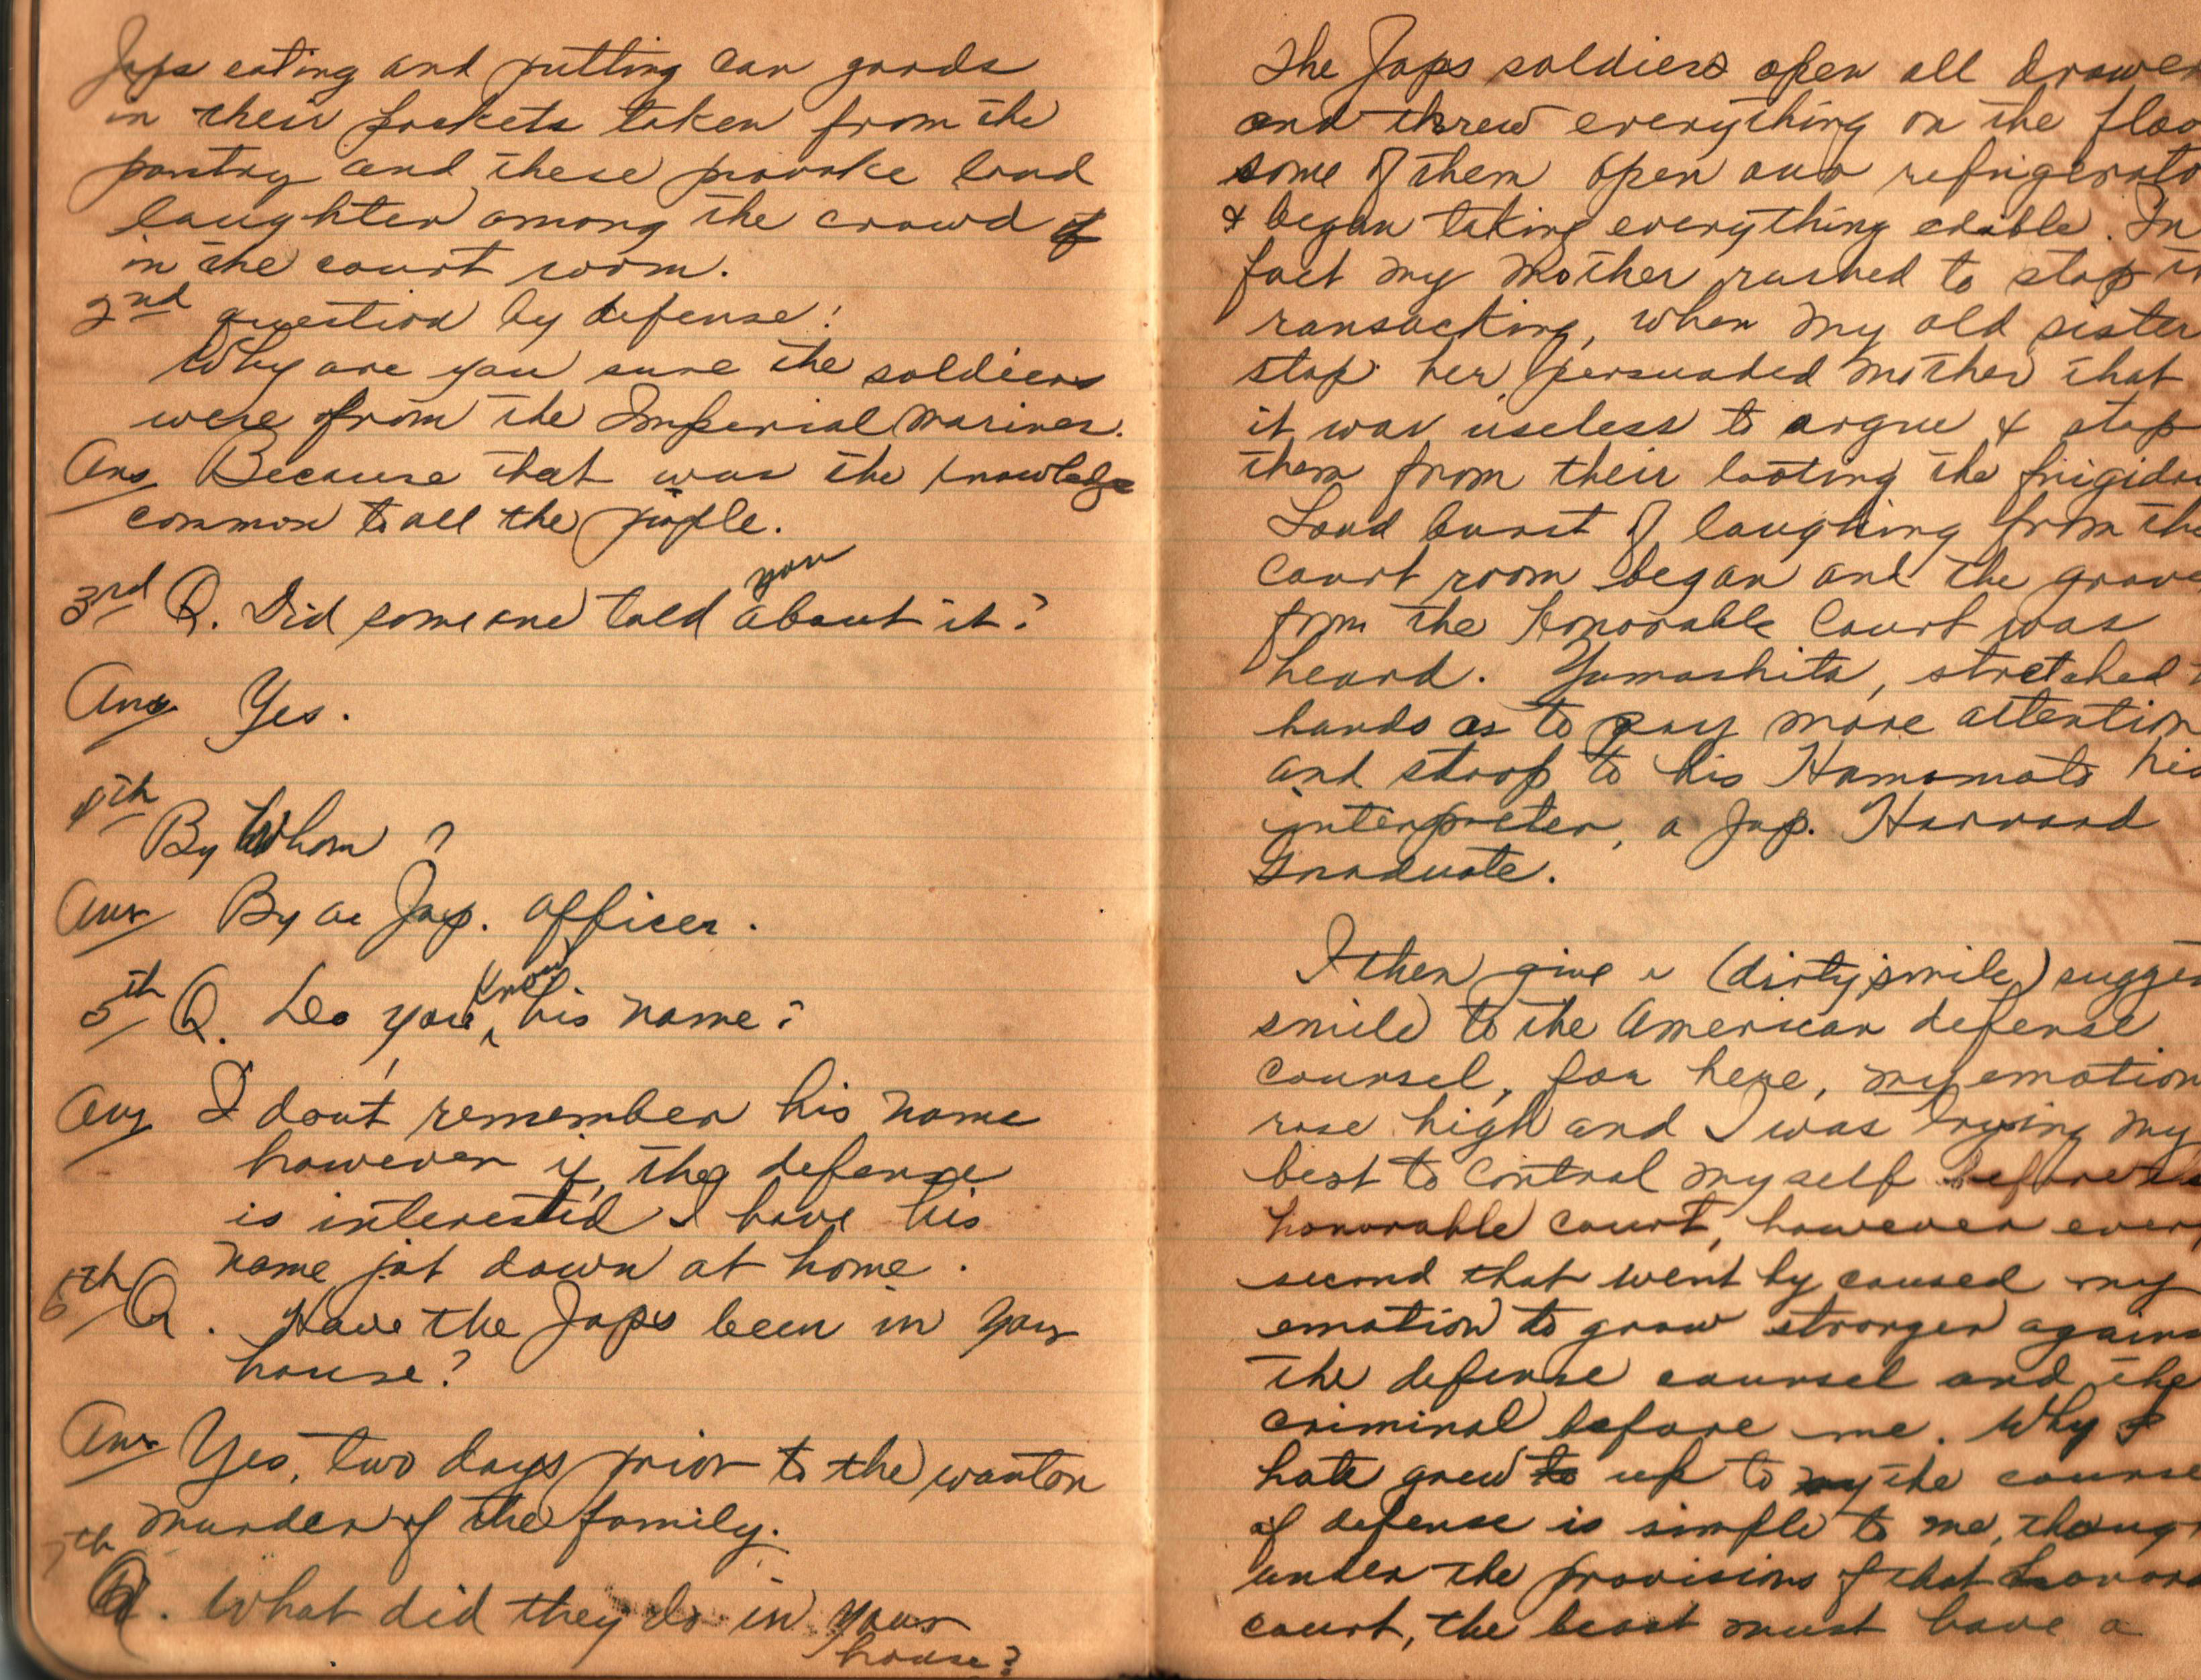 Japs eating and putting can goods
in their pockets taken from the
pantry and these provoke loud
laughter among the crowd
in the court room.
2nd question by defense:
Why are you sure the soldiers
were from the Imperial Marines.
Ans Because that was the knowledge
common to all the people.
you
3rd Q. Did some one told about it?
Ans Yes.
4th
By Whom ?
Ans By a Jap. officer.
know
5th Q. Do you his name?
Ans I don't remember his name
however if the defense
is interested I have his
name jot down at home.
6th Q. Have the Japs been in your
house?
Ans Yes, two days prior to the wanton
murder of the family.
7th
Q. What did they do in your
house?
The Japs soldiers open all drawer
and threw everything on the floo
some of them open our refrigerato
& began taking everything edible. In
fact my mother rushed to stop
ransacking, when my old sister
stop her, persuaded mother that
it was useless to argue & stop
them from their looting the frigidai
Loud burst of laughing from the
court room began and the
from the Honorable Court was
heard. Yamashita, stretched
hands as to pay more attention
and stoop to his Hamamoto his
interpreter, a Jap. Harvard
Graduate.
I then give a (dirty smile) sugges
smile to the American defense
counsel, for here, my emotion
rose high and I was trying my
best to control myself before the
honorable court, however ever
second that went by caused my
emotion to grow stronger agains
the defense counsel and the
criminal before me. Why
hate grew to up to my the counse
of defense is simple to me, thoug
under the provisions of that Honora
court, the beast must have a